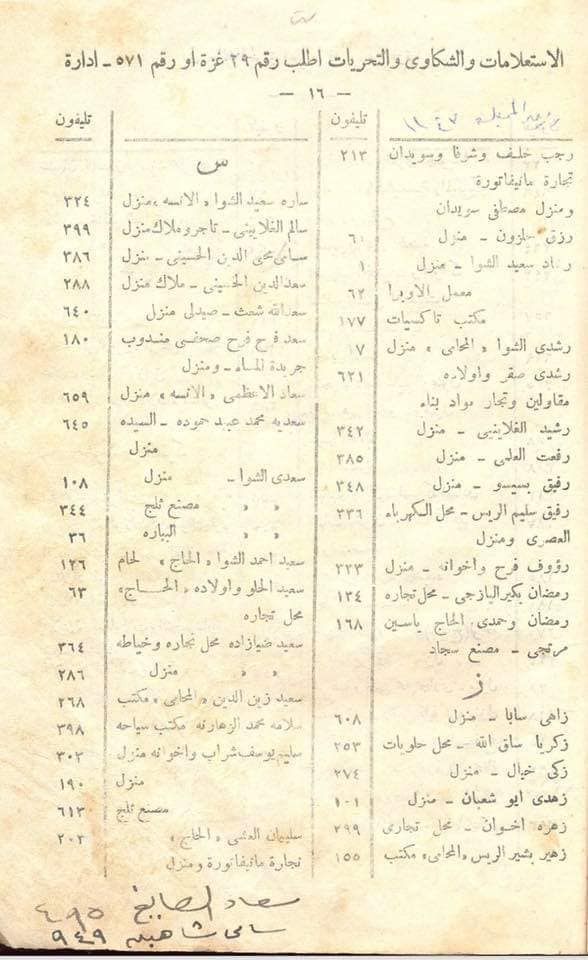 الاستعلامات والشكاوى والتحريات اطلب رقم ٢٩ غزة او رقم ٥٧١ - ادارة
— ١٦ —
تليفون
١١٤٧
رجب خلف وشرفا وسويدان ٢١٣
تجارة مانيفاتورة
ومنزل مصطفى سويدان
رزق حلزون - منزل ٦٠
رشاد سعيد الشوا - منزل ١
معمل الاوبرا ٦٢
مكتب تاكسيات ١٧٧
رشدي الشوا «المحامى» منزل ١٧
رشدي صقر واولاده ٦٢١
مقاولين وتجار مواد بناء
رشيد الغلاييني - منزل ٣٤٢
رفعت العلمي - منزل ٣٨٥
رفيق بسيسو - منزل ٣٤٨
رفيق سليم الريس - محل الكهرباء ٢٣٦
العصرى ومنزل
رؤوف فرح واخوانه - منزل ٢٢٣
رمضان بكير اليازجي - محل تجاره ١٣٤
رمضان وحمدى الحاج ياسين ١٦٨
مرتجى - مصنع سجاد
ز
زاهى سابا - منزل ٦٠٨
زكريا ساق الله - محل حلويات ٢٥٣
زكى خيال - منزل ٢٧٤
زهدى ابو شعبان - منزل ١٠١
زهره اخوان - محل تجارى ٢٩٩
زهير بشير الريس «المحامى» مكتب ١٥٥
تليفون
س
ساره سعيد الشوا «الانسه» منزل ٣٢٤
سالم الغلاييني - تاجر وملاك منزل ٣٩٩
سامى محى الدين الحسيني - منزل ٣٨٦
سعد الدين الحسيني - ملاك منزل ٢٨٨
سعدالله شعث - صيدلى منزل ٦٤٠
سعد فرح فرح صحفى مندوب ١٨٠
جريدة المساء - ومنزل
سعاد الاعظمى «الانسه» منزل ٦٥٩
سعديه محمد عبد حموده - السيده ٦٤٥
منزل
سعدى الشوا - منزل ١٠٨
« « مصنع ثلج ٣٤٤
« « البياره ٣٦
سعيد احمد الشوا «الحاج» لحام ١٢٦
سعيد الحلو واولاده «الحاج» ٦٣
محل تجاره
سعيد ضيازاده محل تجاره وخياطه ٣٦٤
« « منزل ٢٨٦
سعيد زين الدين «المحامى» مكتب ٢٦٨
سلامه محمد الزهارنه مكتب سياحه ٣٩٨
سليم يوسف شراب واخوانه منزل ٣٠٢
منزل ١٩٠
مصنع ثلج ٦١٣
سليمان العشى «الحاج» ٢٠٢
تجارة مانيفاتورة ومنزل
سعاد الصايغ ٤٩٥
سامى شاهين ٩٤٩